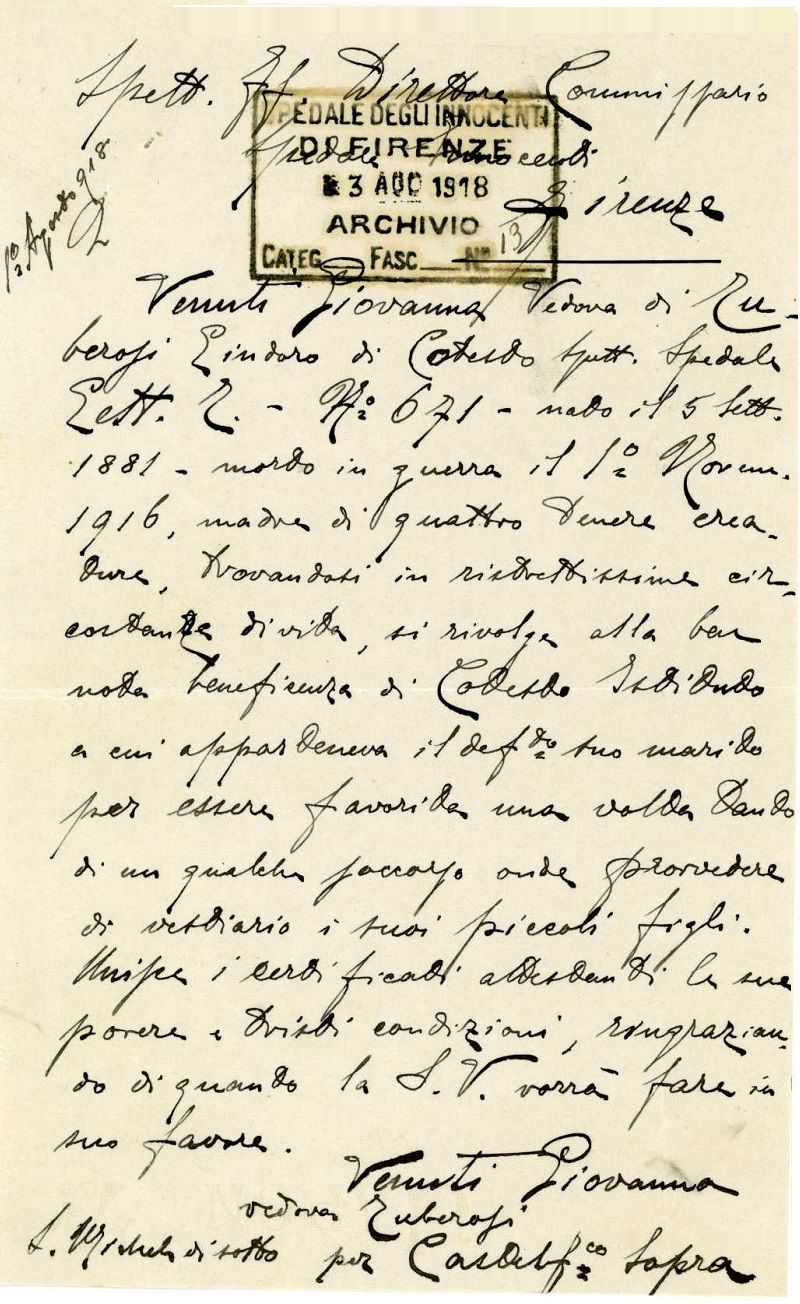 Spett. ff. Direttore Commissario
Spedale Innocenti
Firenze
SPEDALE DEGLI INNOCENTI
DI FIRENZE
3 AGO 1918
ARCHIVIO
CATEG FASC Nº 13
1º Agosto 918
Venuti Giovanna Vedova di Zu-
berosi Lindoro di Cotesto Spett. Spedale
Lett. Z. - Nº 671 - nato il 5 Sett.
1881 - morto in guerra il 1º Novem.
1916, madre di quattro tenere crea-
ture, trovandosi in ristrettissime cir-
costanze di vita, si rivolge alla ben
nota beneficenza di Cotesto Istituto
a cui apparteneva il def.to suo marito
per essere favorita una volta tanto
di un qualche soccorso onde provvedere
di vestiario i suoi piccoli figli.
Unisce i certificati attestanti le sue
povere e tristi condizioni, ringrazian-
do di quanto la S. V. vorrà fare in
suo favore.
Venuti Giovanna
vedova Zuberosi
S. Michele di sotto per Castelf.co Sopra